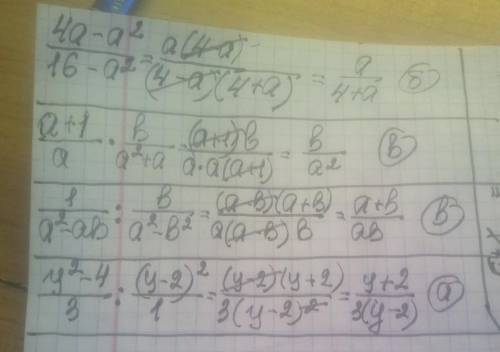 (4a-a²)/(16-a²) = a(4-a)/((4-a)(4+a)) = a/(4+a) б
(a+1)/a · b/(a²+a) = (a+1)b/(a·a(a+1)) = b/a² в
1/(a²-ab) : b/(a²-b²) = (a-b)(a+b)/(a(a-b)b) = (a+b)/(ab) в
(y²-4)/3 : (y-2)²/1 = (y-2)(y+2)/(3(y-2)²) = (y+2)/(3(y-2)) а